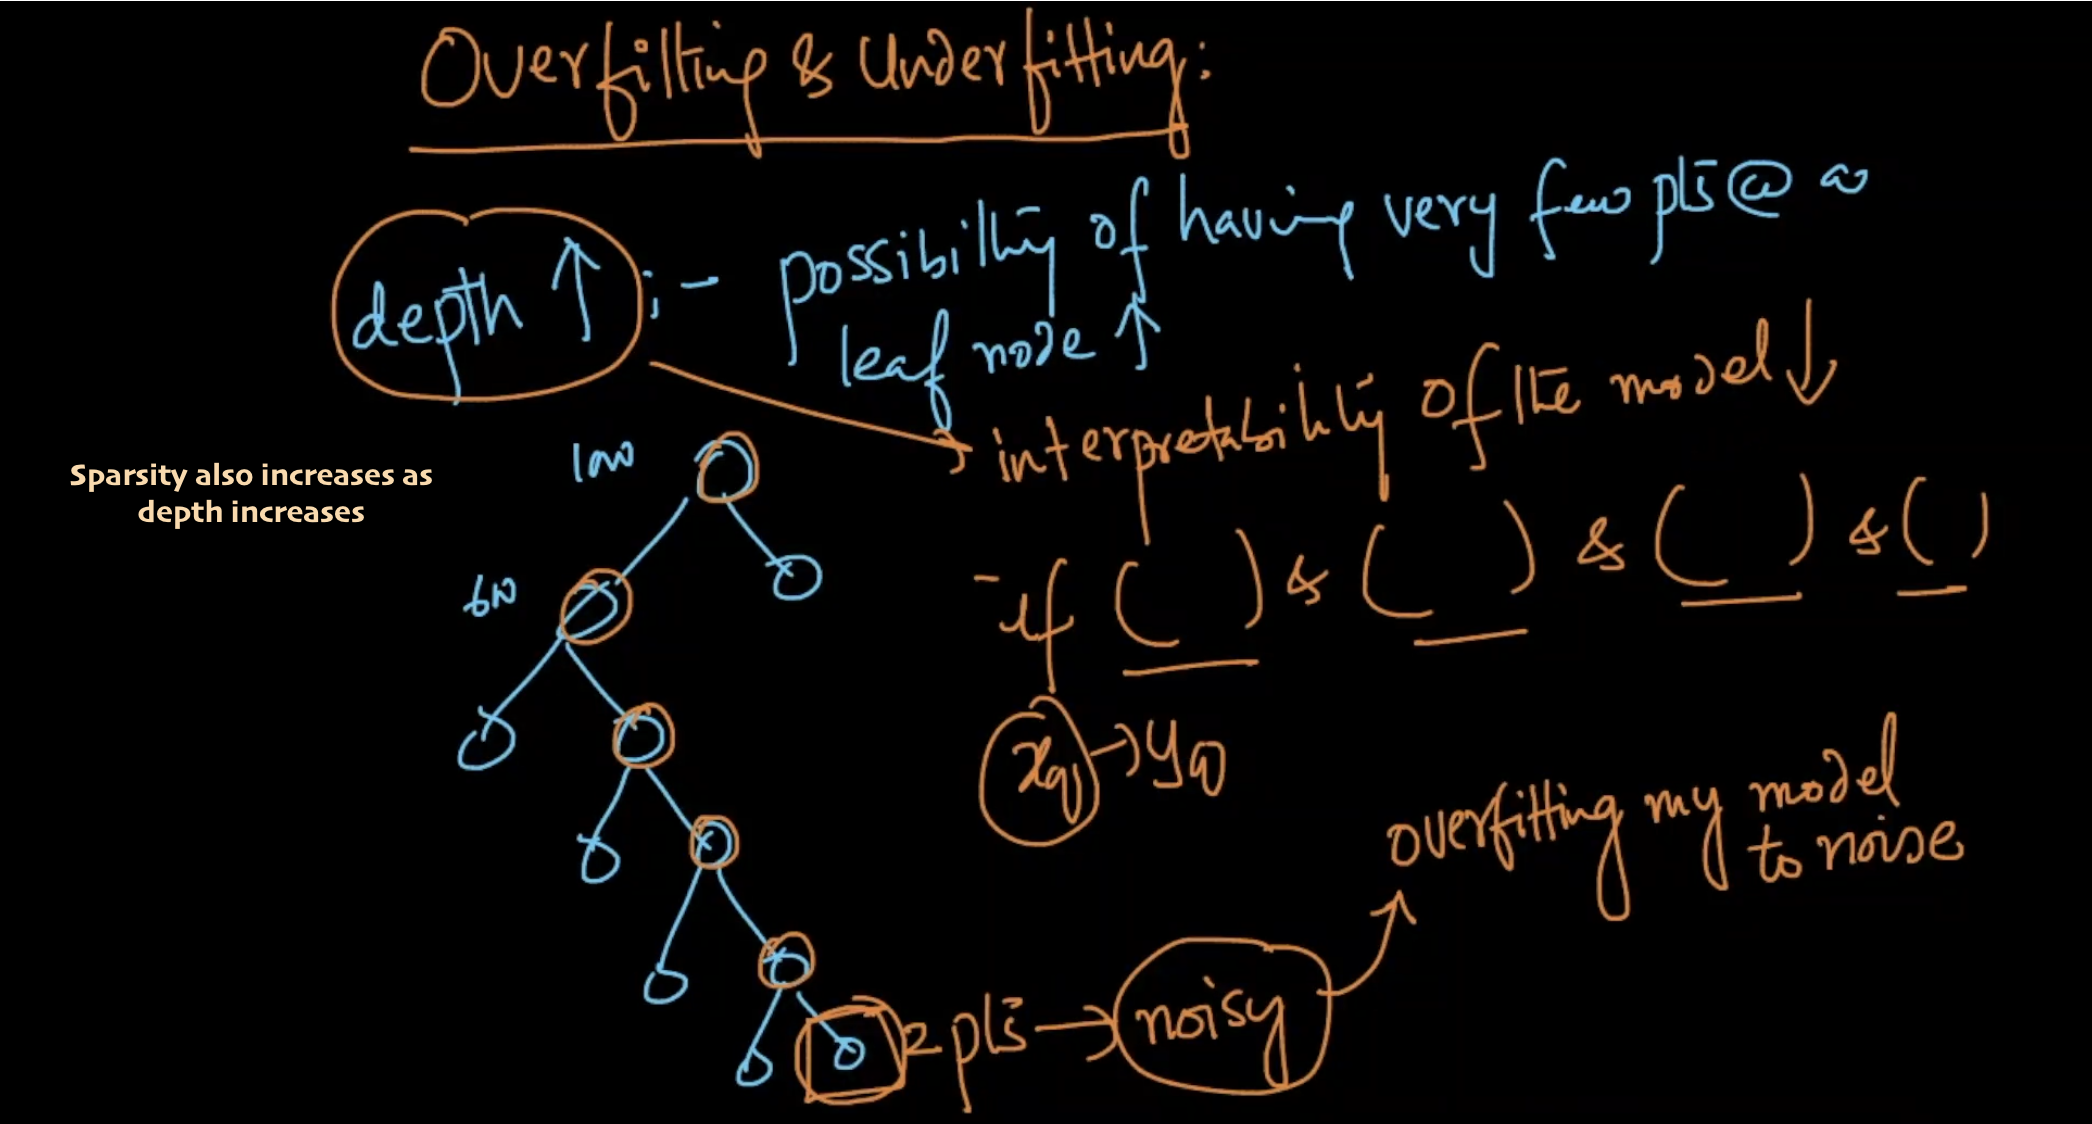 Overfitting & Underfitting:
depth ↑ ; - possibility of having very few pts @ a
leaf node ↑
→ interpretability of the model ↓
Sparsity also increases as
depth increases
- if ( ) & ( ) & ( ) & ( )
xq → yq
overfitting my model
to noise
2 pts → noisy